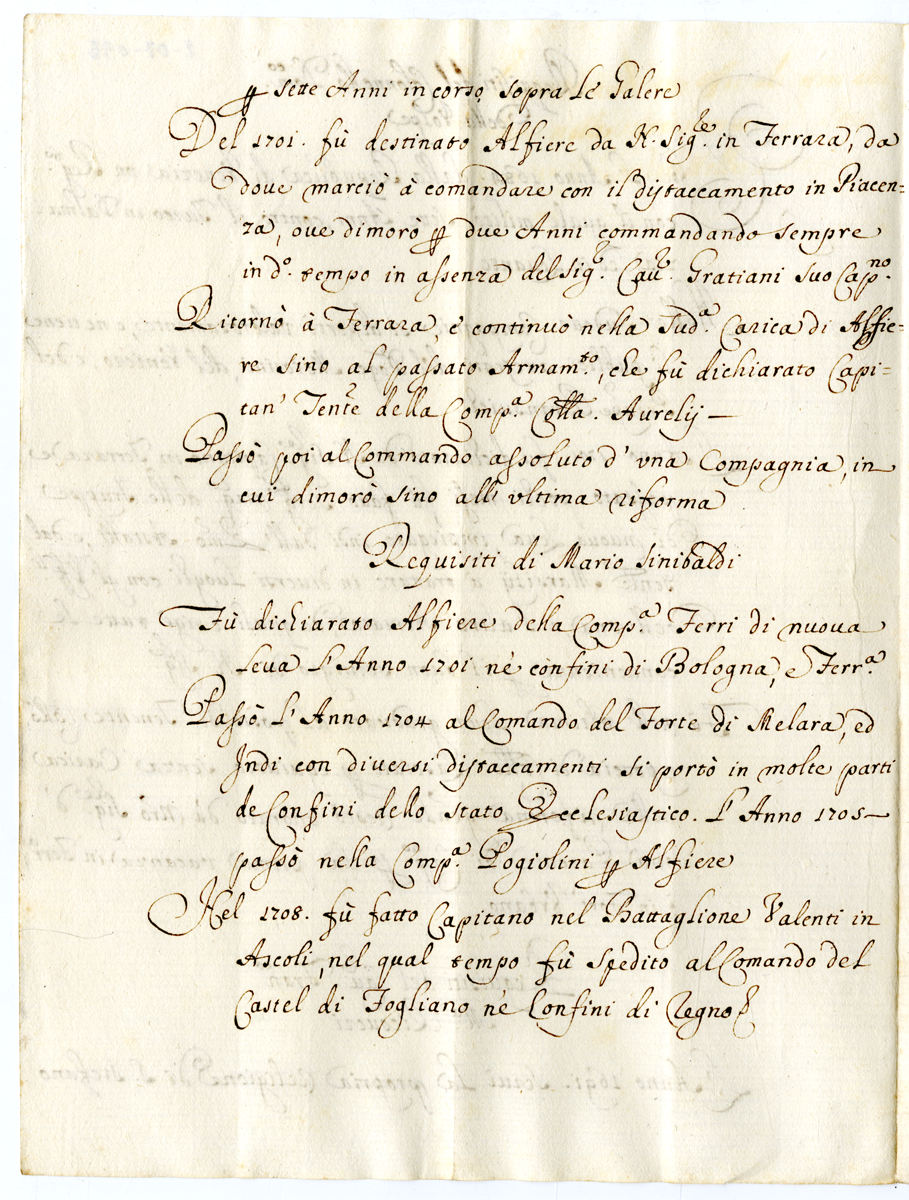 ꝑ sette Anni in corso sopra le Galere
Del 1701. fù destinato Alfiere da N. Sig.re in Ferrara, da
dove marciò à comandare con il distaccamento in Piacen=
za, ove dimorò ꝑ due Anni commandando sempre
in d.o tempo in assenza del Sig.r Cau.r Gratiani suo Cap.no
Ritornò à Ferrara, e continuò nella sud.a Carica di Alfie=
re sino al passato Armam.to, che fù dichiarato Capi=
tan' Tente della Comp.a Colla. Aurelij —
Passò poi al Commando assoluto d' vna Compagnia, in
cui dimorò sino all' vltima riforma
Requisiti di Mario Sinibaldi
Fù dichiarato Alfiere della Comp.a Ferri di nuova
leva l'Anno 1701 nè confini di Bologna, e Ferr.a
Passò l'Anno 1704 al Comando del Forte di Melara, ed
Indi con diversi distaccamenti si portò in molte parti
de Confini dello stato Ecclesiastico. L'Anno 1705 —
passò nella Comp.a Pogiolini ꝑ Alfiere
Nel 1708. fù fatto Capitano nel Battaglione Valenti in
Ascoli, nel qual tempo fù spedito al Comando del
Castel di Fogliano nè Confini di Regno